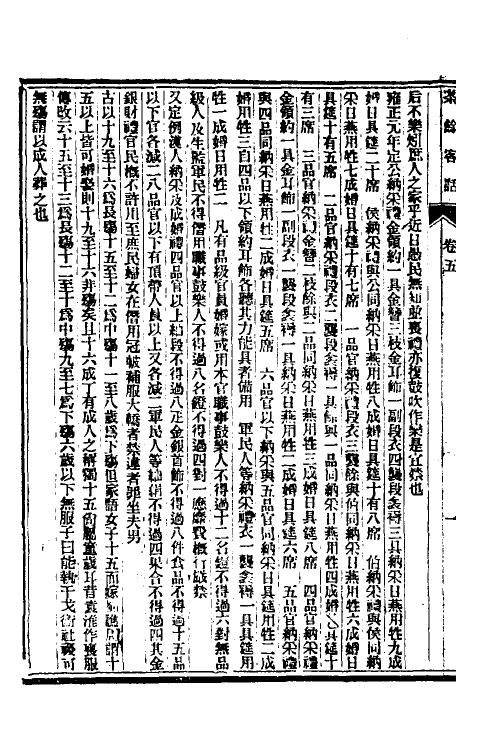 茶餘客話 卷五 一
后不樂矧庶人之家乎近日愚民無知並喪禮亦復鼓吹作樂是宜禁也
雍正元年定公納采禮金領約一具金簪三枝金耳飾一副段衣四襲段衾褥三具納采日燕用牲九成
婚日具筵二十席 侯納采禮與公同納采日燕用牲八成婚日具筵十有八席 伯納采禮與侯同納
采日燕用牲七成婚日具筵十有七席 一品官納采禮段衣三襲餘與伯同納采日燕用牲六成婚日
具筵十有五席 二品官納采禮段衣二襲段衾褥二具餘與一品同納采日燕用牲四成婚日具筵十
有三席 三品官納采禮金簪二枝餘與二品同納采日燕用牲三成婚日具筵八席 四品官納采禮
金領約一具金耳飾一副段衣一襲段衾褥一具納采日燕用牲二成婚日具筵六席 五品官納采禮
與四品同納采日燕用牲二成婚日具筵五席 六品官以下納采與五品官同納采日具筵用牲二成
婚用牲三自四品以下領約耳飾各聽其力能具者備用 軍民人等納采禮衣一襲衾褥一具具筵用
牲一成婚日用牲二 凡有品級官員婚嫁或用本官職事鼓樂人不得過十二名鐙不得過六對無品
級人及生監軍民不得僭用職事鼓樂人不得過八名鐙不得過四對一應靡費概行嚴禁
又定例漢人納采及成婚禮四品官以上紬段不得過八疋金銀首飾不得過八件食品不得過十五品
以下官各減二八品官以下有頂帶人員以上又各減二軍民人等紬絹不得過四果合不得過四其金
銀財禮官民概不許用至庶民婦女在僭用冠帔補服大轎者禁違者罪坐夫男
古以十九至十六爲長殤十五至十二爲中殤十一至八歲爲下殤但家語女子十五而嫁則
五以上皆可婚娶則十九至十六非殤矣且十六成丁有成人之稱獨十五尚屬童歲耳昔袁淮作喪服
傳改云十五至十三爲長殤十二至十爲中殤九至七爲下殤六歲以下無服子曰能執干戈衛社稷可
無殤謂以成人葬之也